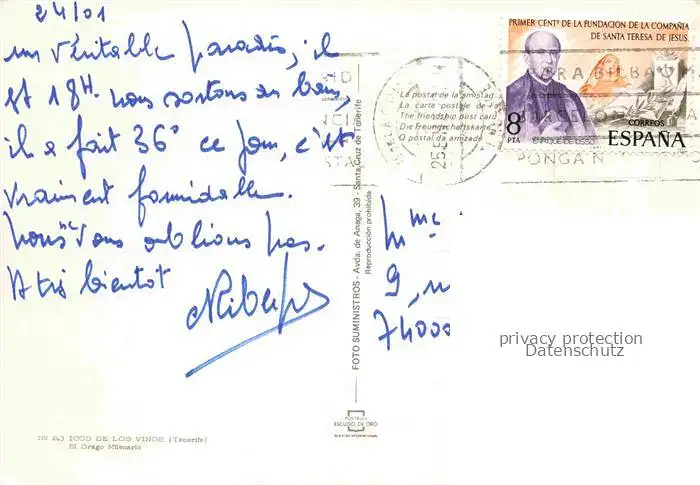 24/01
un véritable paradis, il
est 18H. nous sortons du bain,
il a fait 36° ce jour, c'est
vraiment formidable.
Nous ne vous oublions pas.
A très bientôt
PRIMER CENTº DE LA FUNDACION DE LA COMPAÑIA
DE SANTA TERESA DE JESUS.
8
PTA
CORREOS
ENRIQUE DE OSSO
ESPAÑA
PONGA N
La postal de la amistad
La carte postale de
The friendship post card
Die Freundschaftskarte
O postal da amizade
FOTO SUMINISTROS - Avda. de Anaga, 39 - Santa Cruz de Tenerife
Reproducción prohibida
Mme
9,
74000
privacy protection
Datenschutz
POSTALES
ESCUDO DE ORO
243 ICOD DE LOS VINOS (Tenerife)
El Drago Milenario